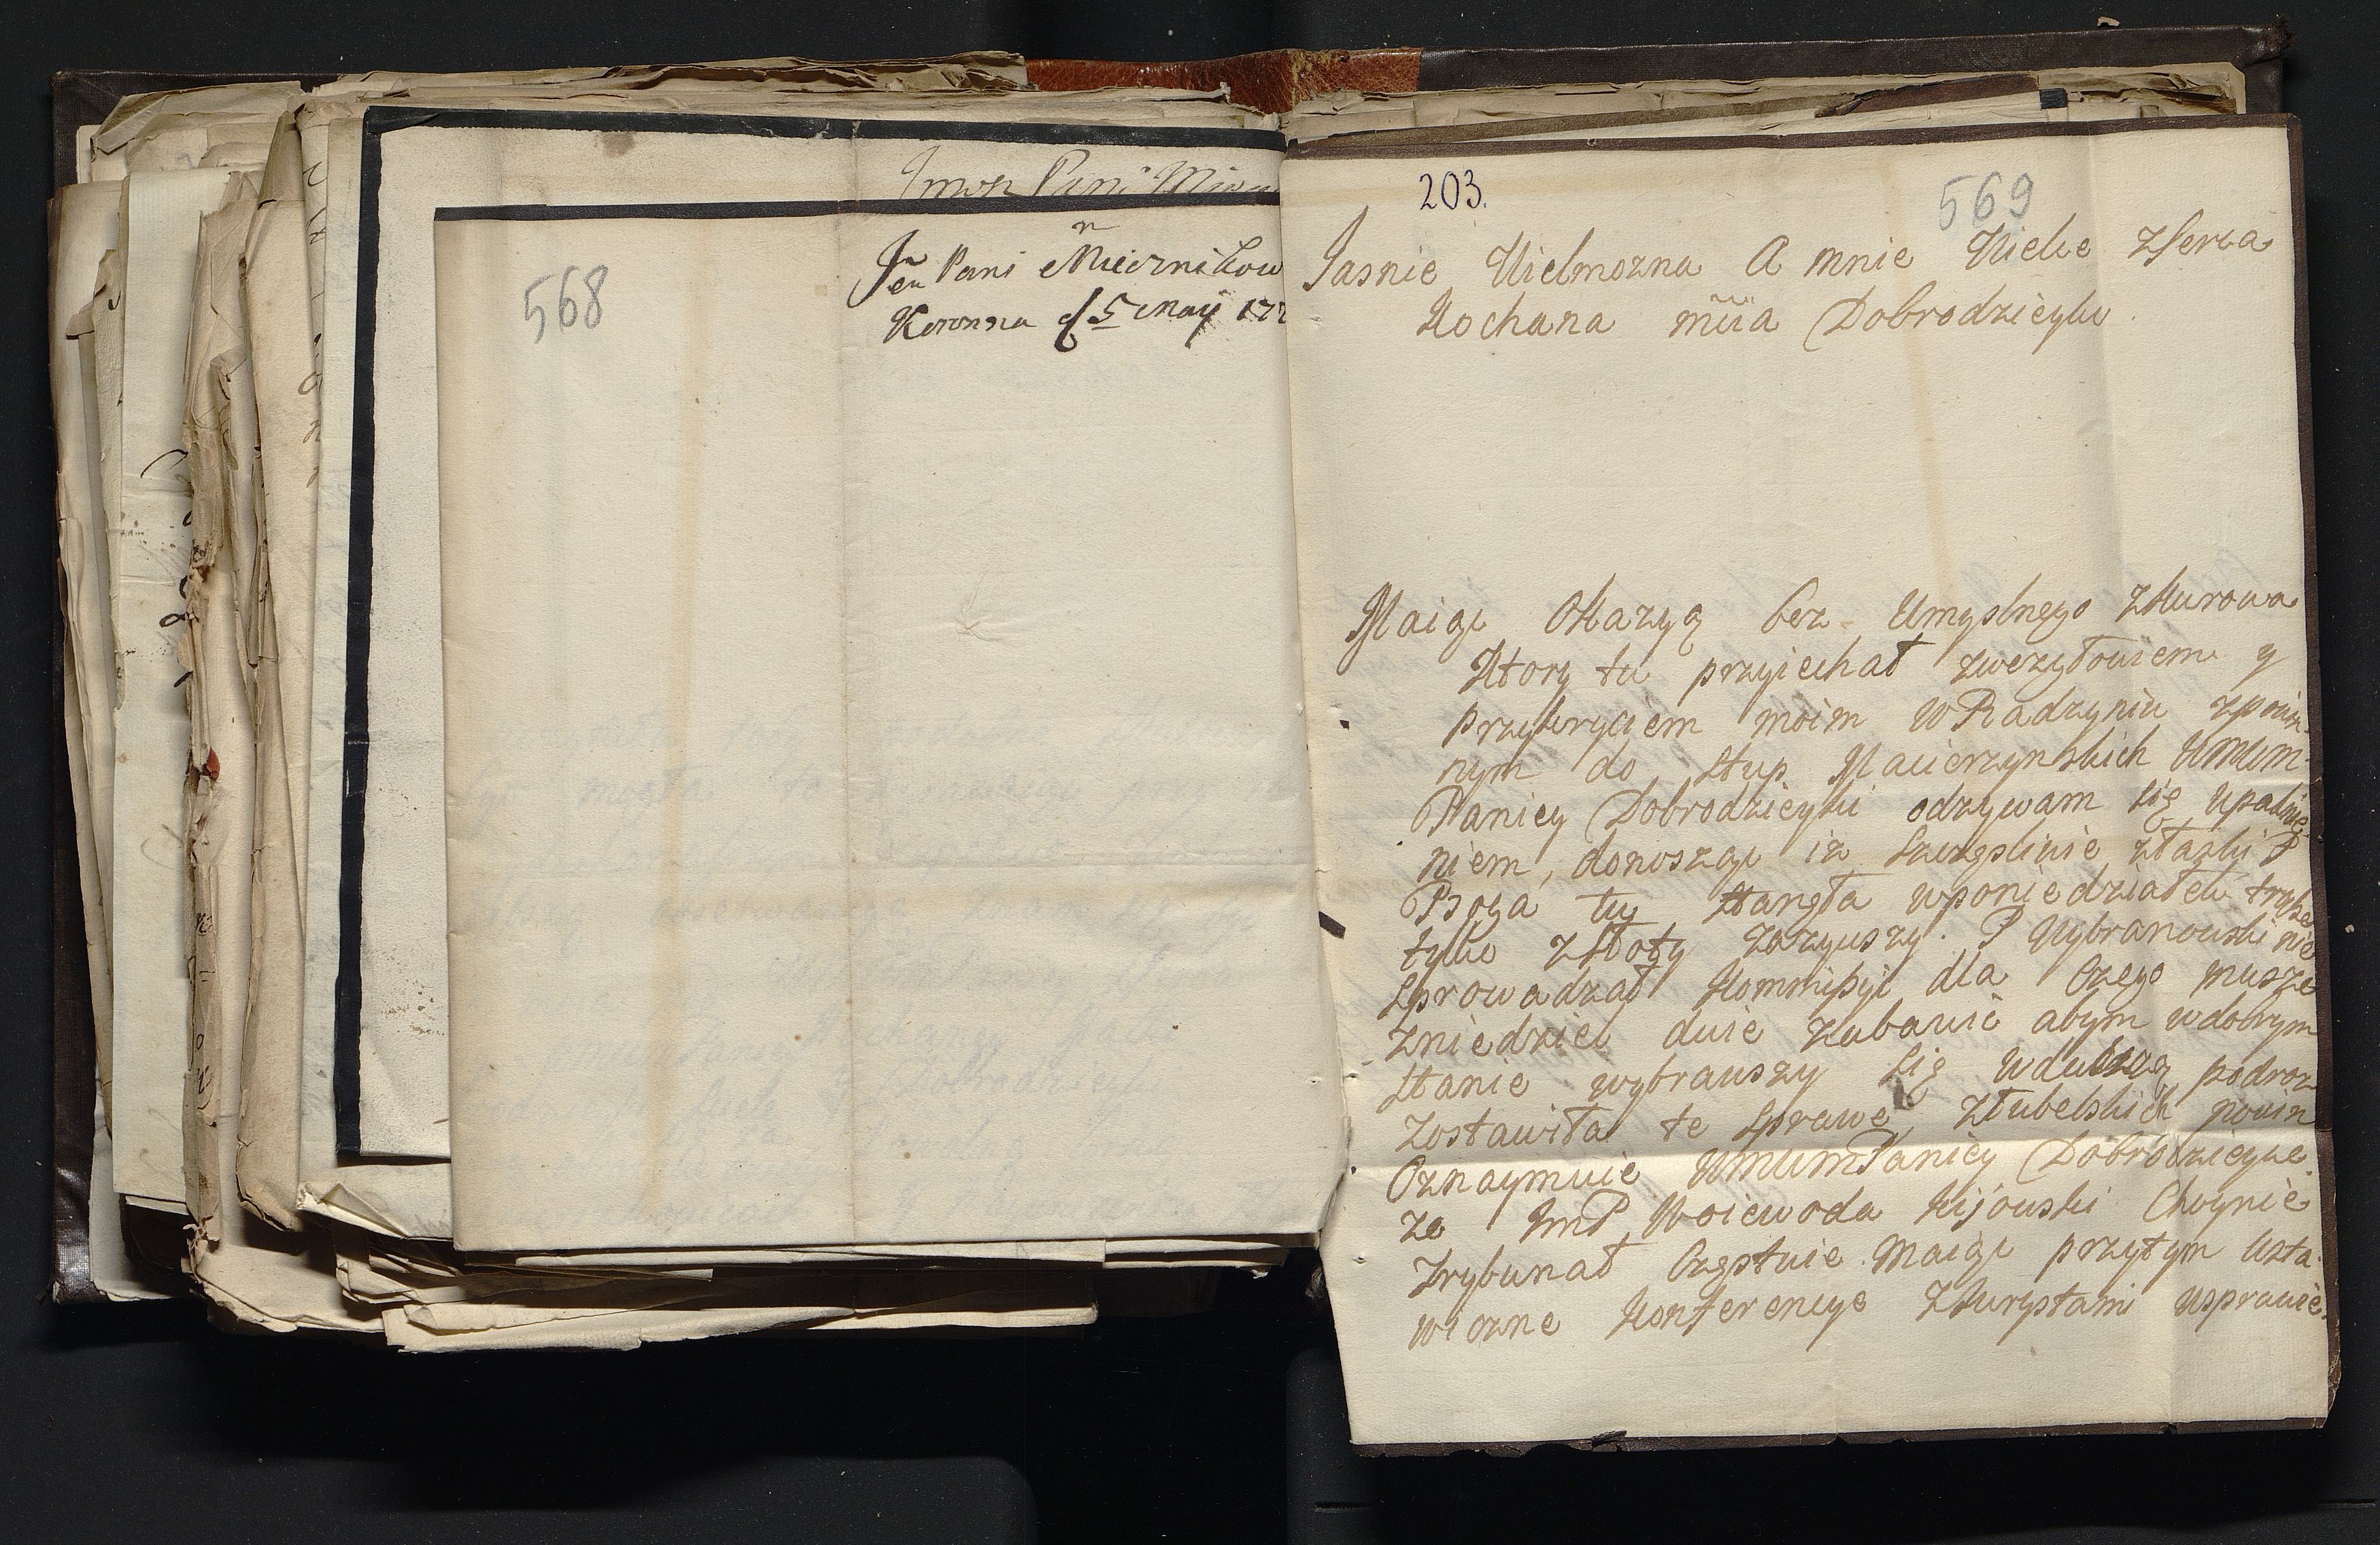 Jmsp Pani
568
Pani Miecznikow
Koronna d 5 Maij 177
203.
569
Jasnie Wielmozna A mnie Wielce z Serca
Kochana mcia Dobrodzieyko
Maiąc Okazyą bez Umyslnego z Kurowa
Ktory tu przyiechał
przykryciem moim w Radzyniu z powin-
nym do Stup Macierzynskich WMM
Paniey Dobrodzieyki odzywam się upadnie-
niem, donosząc iz Szczęsliwie z łaski P
Boga tu Stanęła w poniedziałek trochę
tylko z Słoty zazywszy. P Wybranowski nie
Sprowadzał Kommissyi dla Czego musze
z niedziel dwie zabawic abym w dobrym
Stanie wybrawszy Się w dalszą podroz
Zostawiła te Sprawe, z Lubelskich nowin
Oznaymuie WMMPaniey Dobrodzieyce
ze JmP Woiewoda Kijowski Choynie
Trybunał Częstuie. Maiąc przytym Usta-
wiczne Konferencye z Jurystami w sprawie